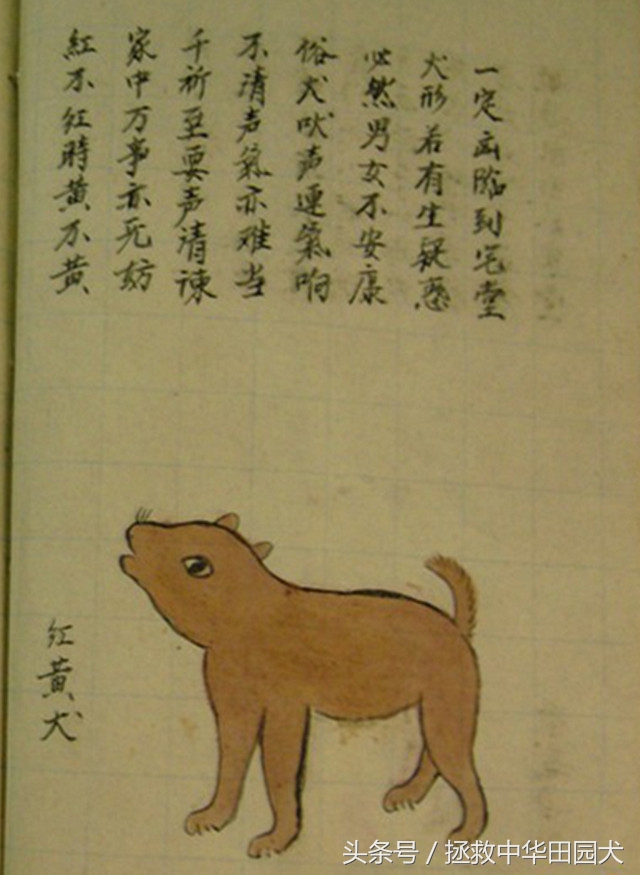 紅不红時黄不黄
家中万事亦无妨
千祈至要声清谏
不清声氣亦难当
俗犬吠声連氣响
必然男女不安康
犬形若有生疑惑
一定凶临到宅堂
红黄犬
头条号 / 拯救中华田园犬